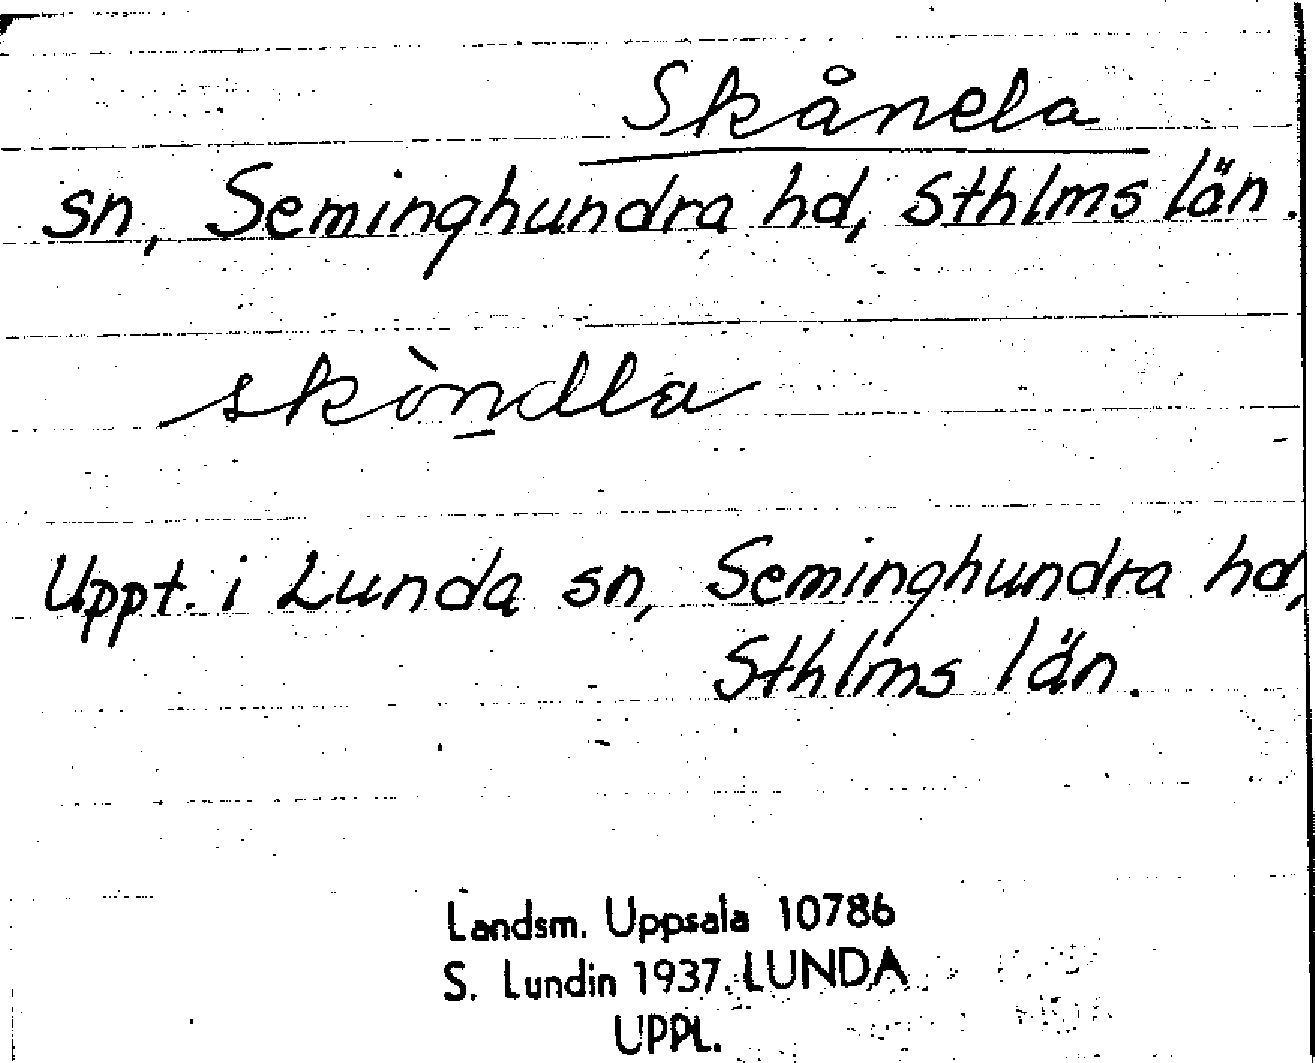 Skånela
sn, Seminghundra hd, Sthlms län.
skòn̲dla
Uppt. i Lunda sn, Seminghundra hd,
Sthlms län.
Landsm. Uppsala 10786
S. Lundin 1937. LUNDA
UPPL.